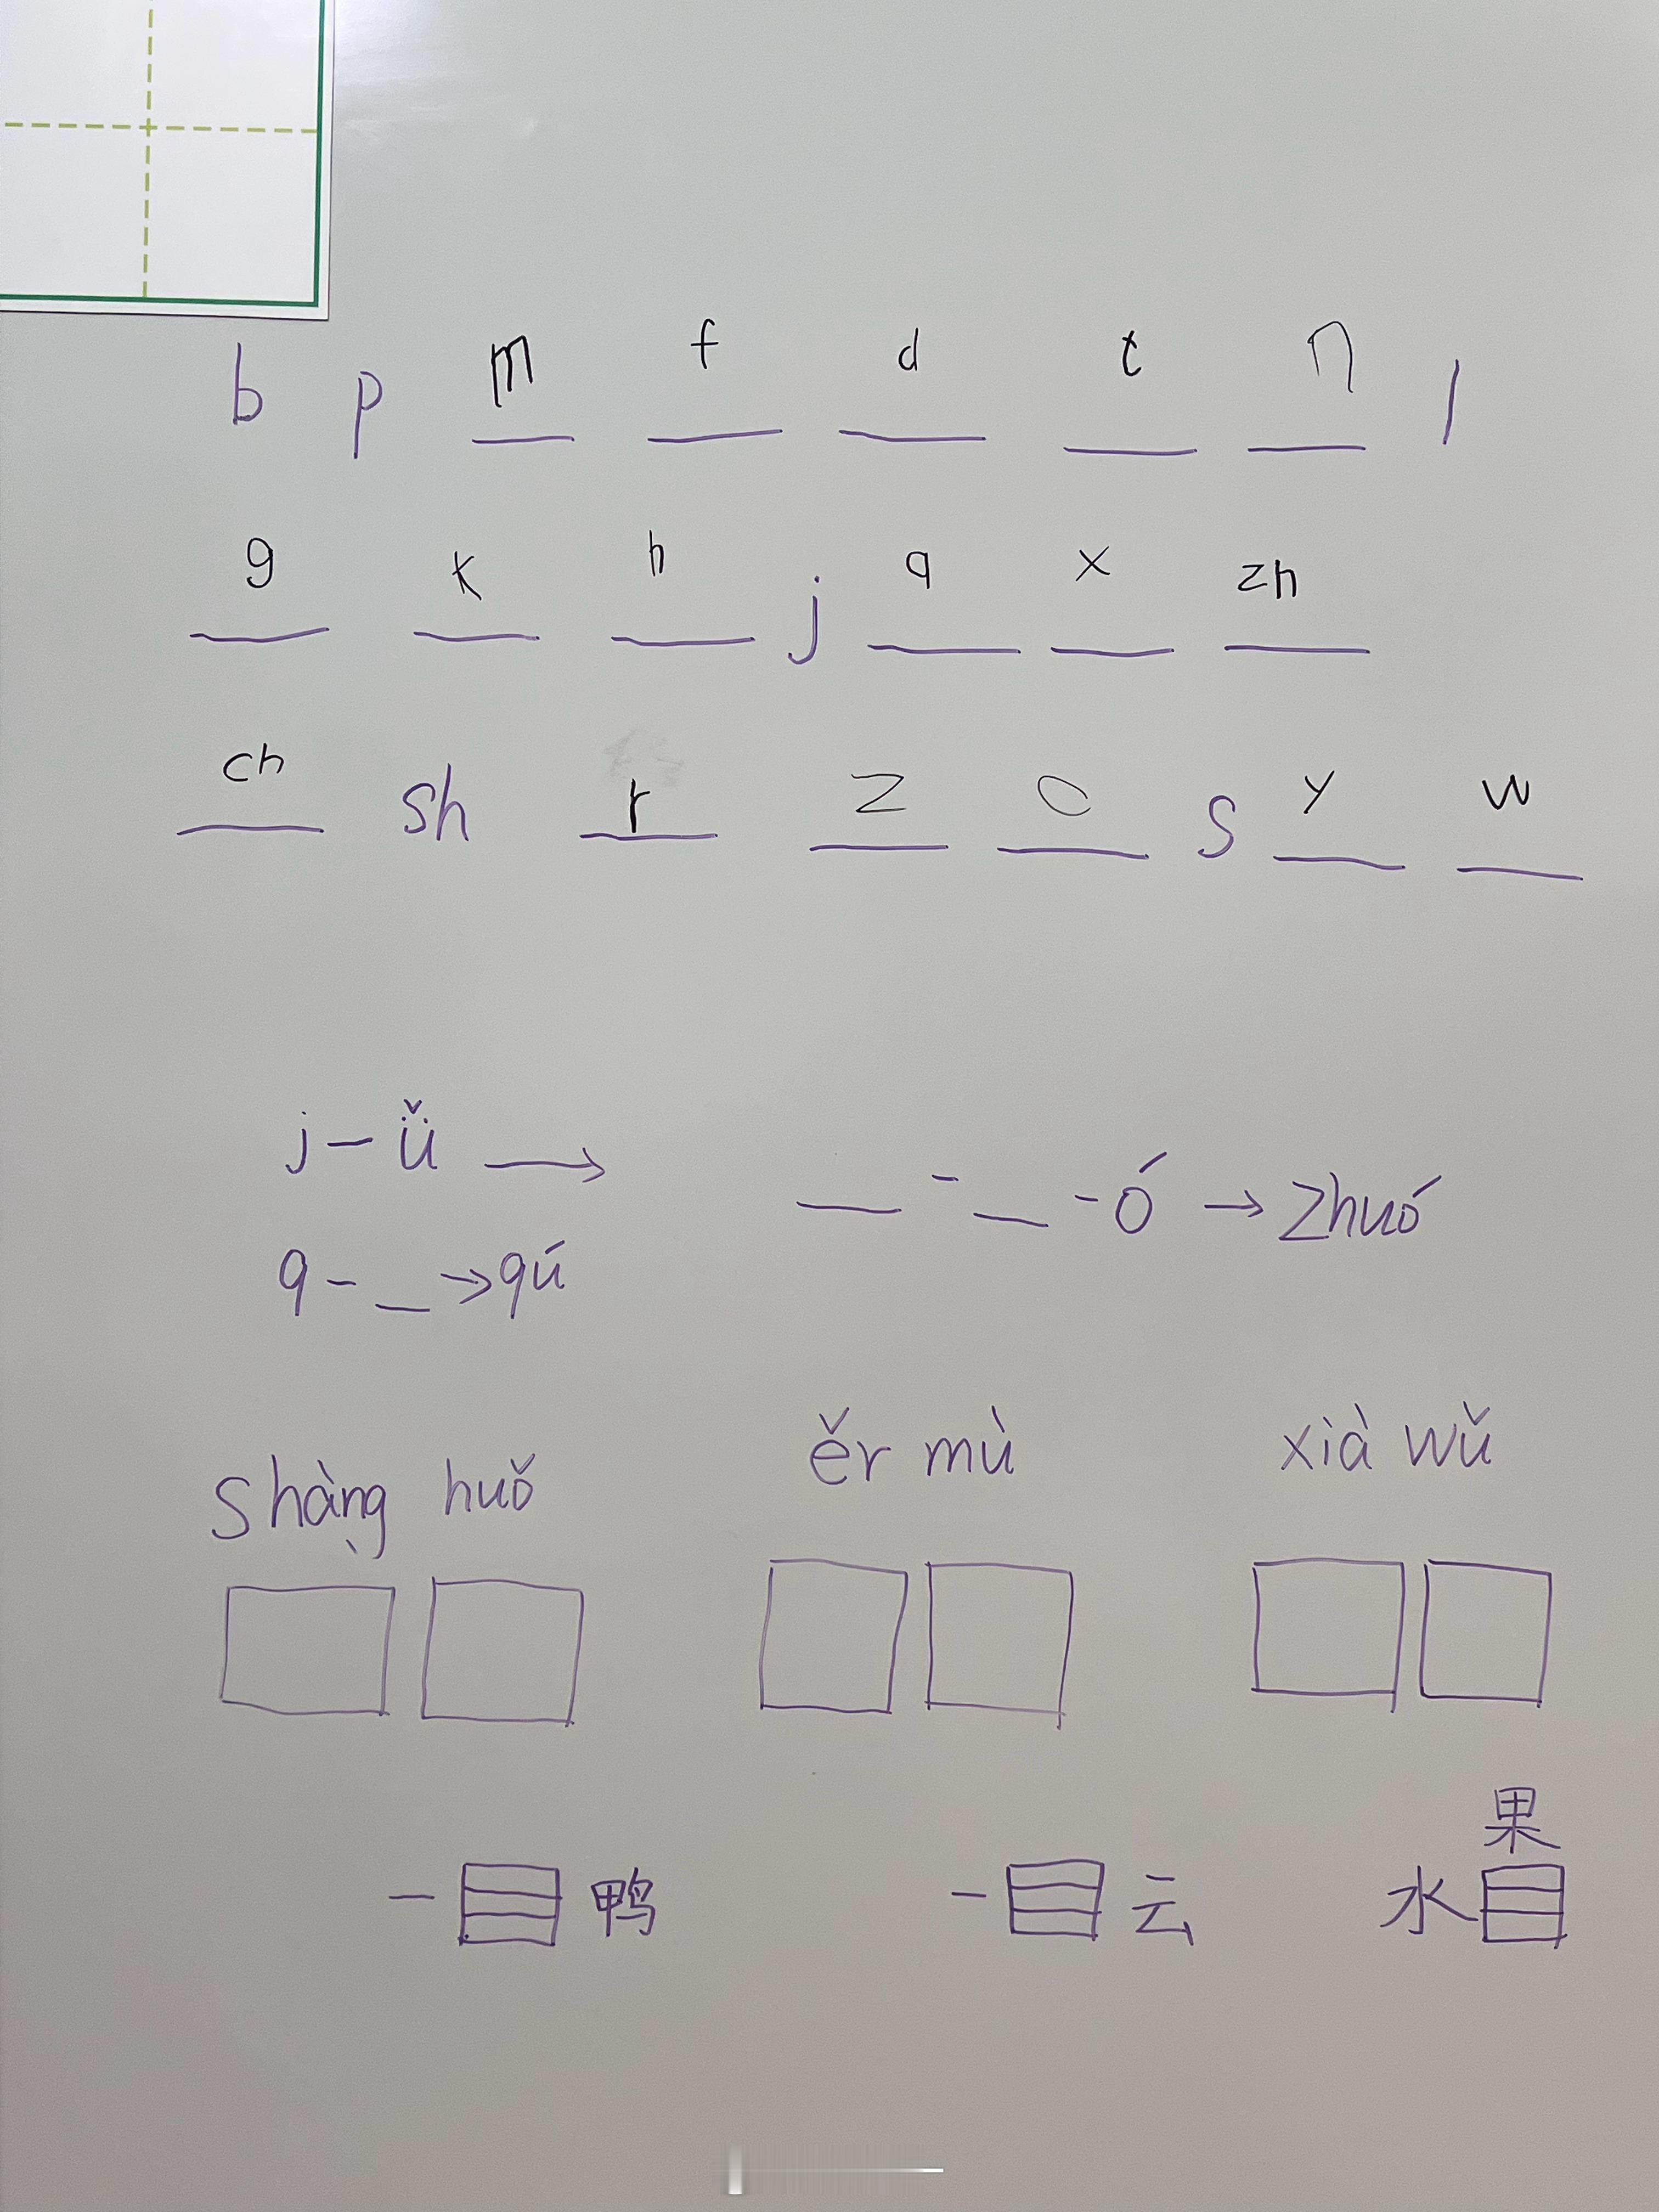 b p m f d t n l
g k h j q x zh
ch sh r z c s y w
j - ǚ → __ - __ - ó → zhuó
q - __ → qú
shàng huǒ ěr mù xià wǔ
果
一 鸭 一 云 水